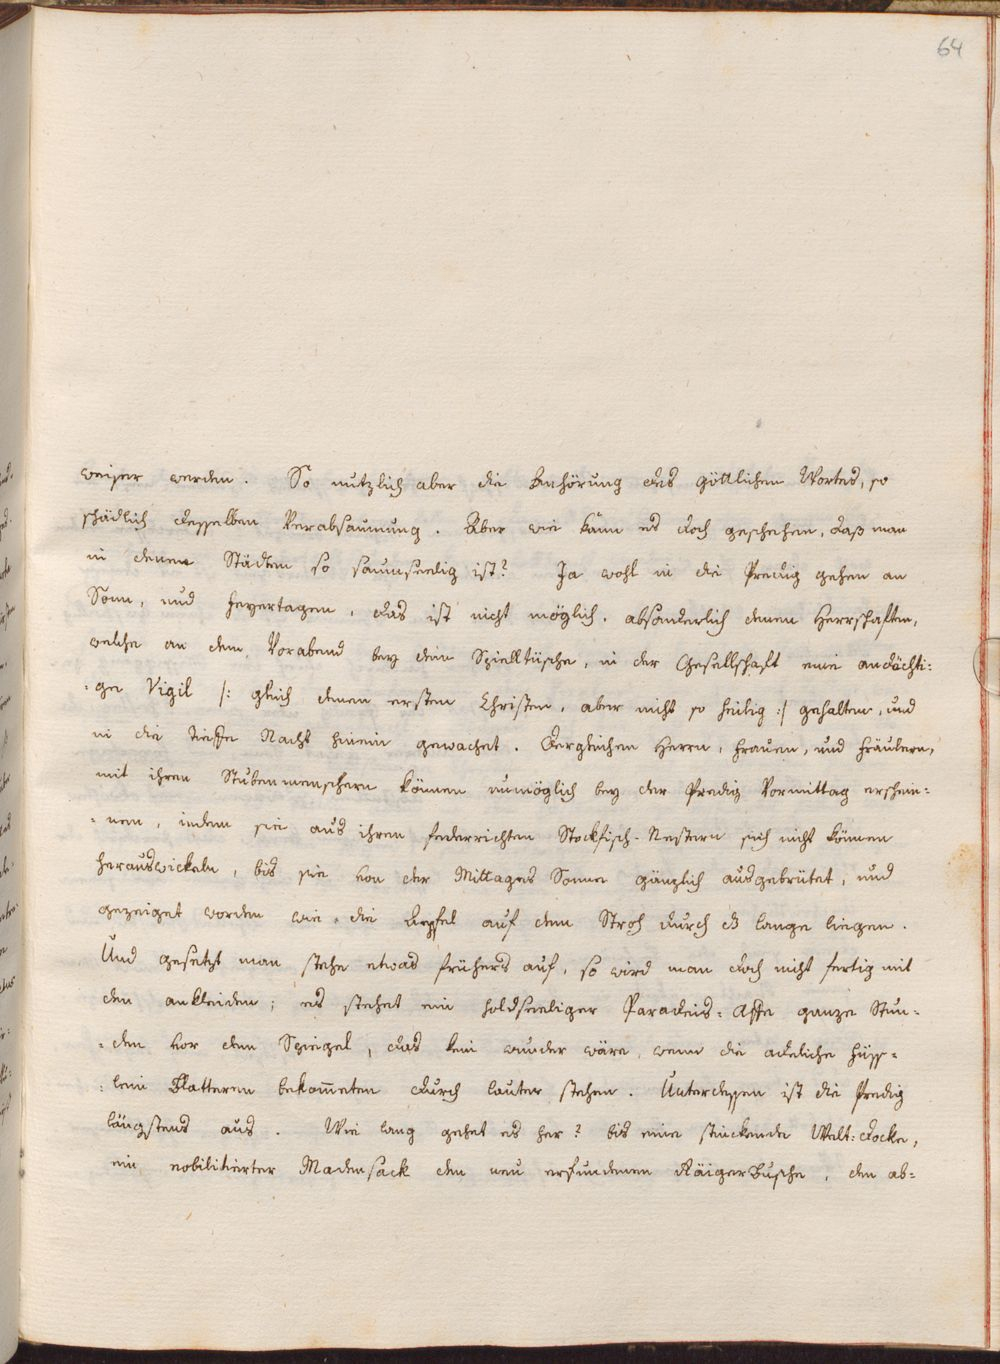 64
weiser werden. So nutzlich aber die Anhörung des göttlichen Wortes, so
schädlich desselben Verabsaumung. Aber wie kann es doch geschehen, daß man
in denen Städten so saumseelig ist? Ja wohl in die Predig gehen an
Sonn, und Feyertagen, das ist nicht möglich, absonderlich denen Herrschaften,
welche an dem Vorabend bey dem Spielltische, in der Gesellschaft eine andächti:
:ge Vigil /: gleich denen ersten Christen, aber nicht so heilig :/ gehalten, und
in die tieffe Nacht hinein gewachet. Dergleichen Herrn, Frauen, und Fräulern,
mit ihren Stubenmenschern können unmöglich bey der Predig Vormittag erschei:
:nen, indem sie aus ihren federrichten Stockfisch-Nestern sich nicht können
herauswickeln, bis sie von der Mittages Sonne gänzlich ausgebrütet, und
gezeiget worden wie die Aepfel auf dem Stroh durch ds lange liegen.
Und gesetzt man stehe etwas frühers auf, so wird man doch nicht fertig mit
den ankleiden; es stehet ein holdseeliger Paradeis: Affe ganze Stun:
:den vor dem Spiegel, das kein wunder wäre, wenn die adeliche Füss:
:lein Blatteren bekom̅eten durch lauter stehen. Unterdessen ist die Predig
längstens aus. Wie lang gehet es her? bis eine stinckende Welt: docke,
ein nobilitierter Madensack den neu erfundenen Räigerbusche, den ab: